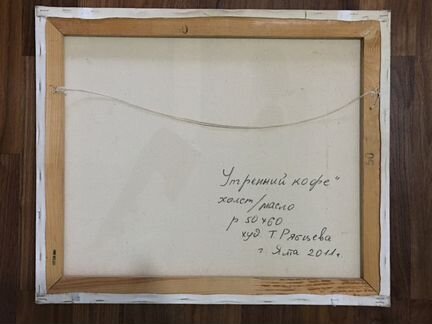 Утренний кофе"
холст/масло
р 50×60
худ. Т. Рябцева
г. Ялта 2011г
50